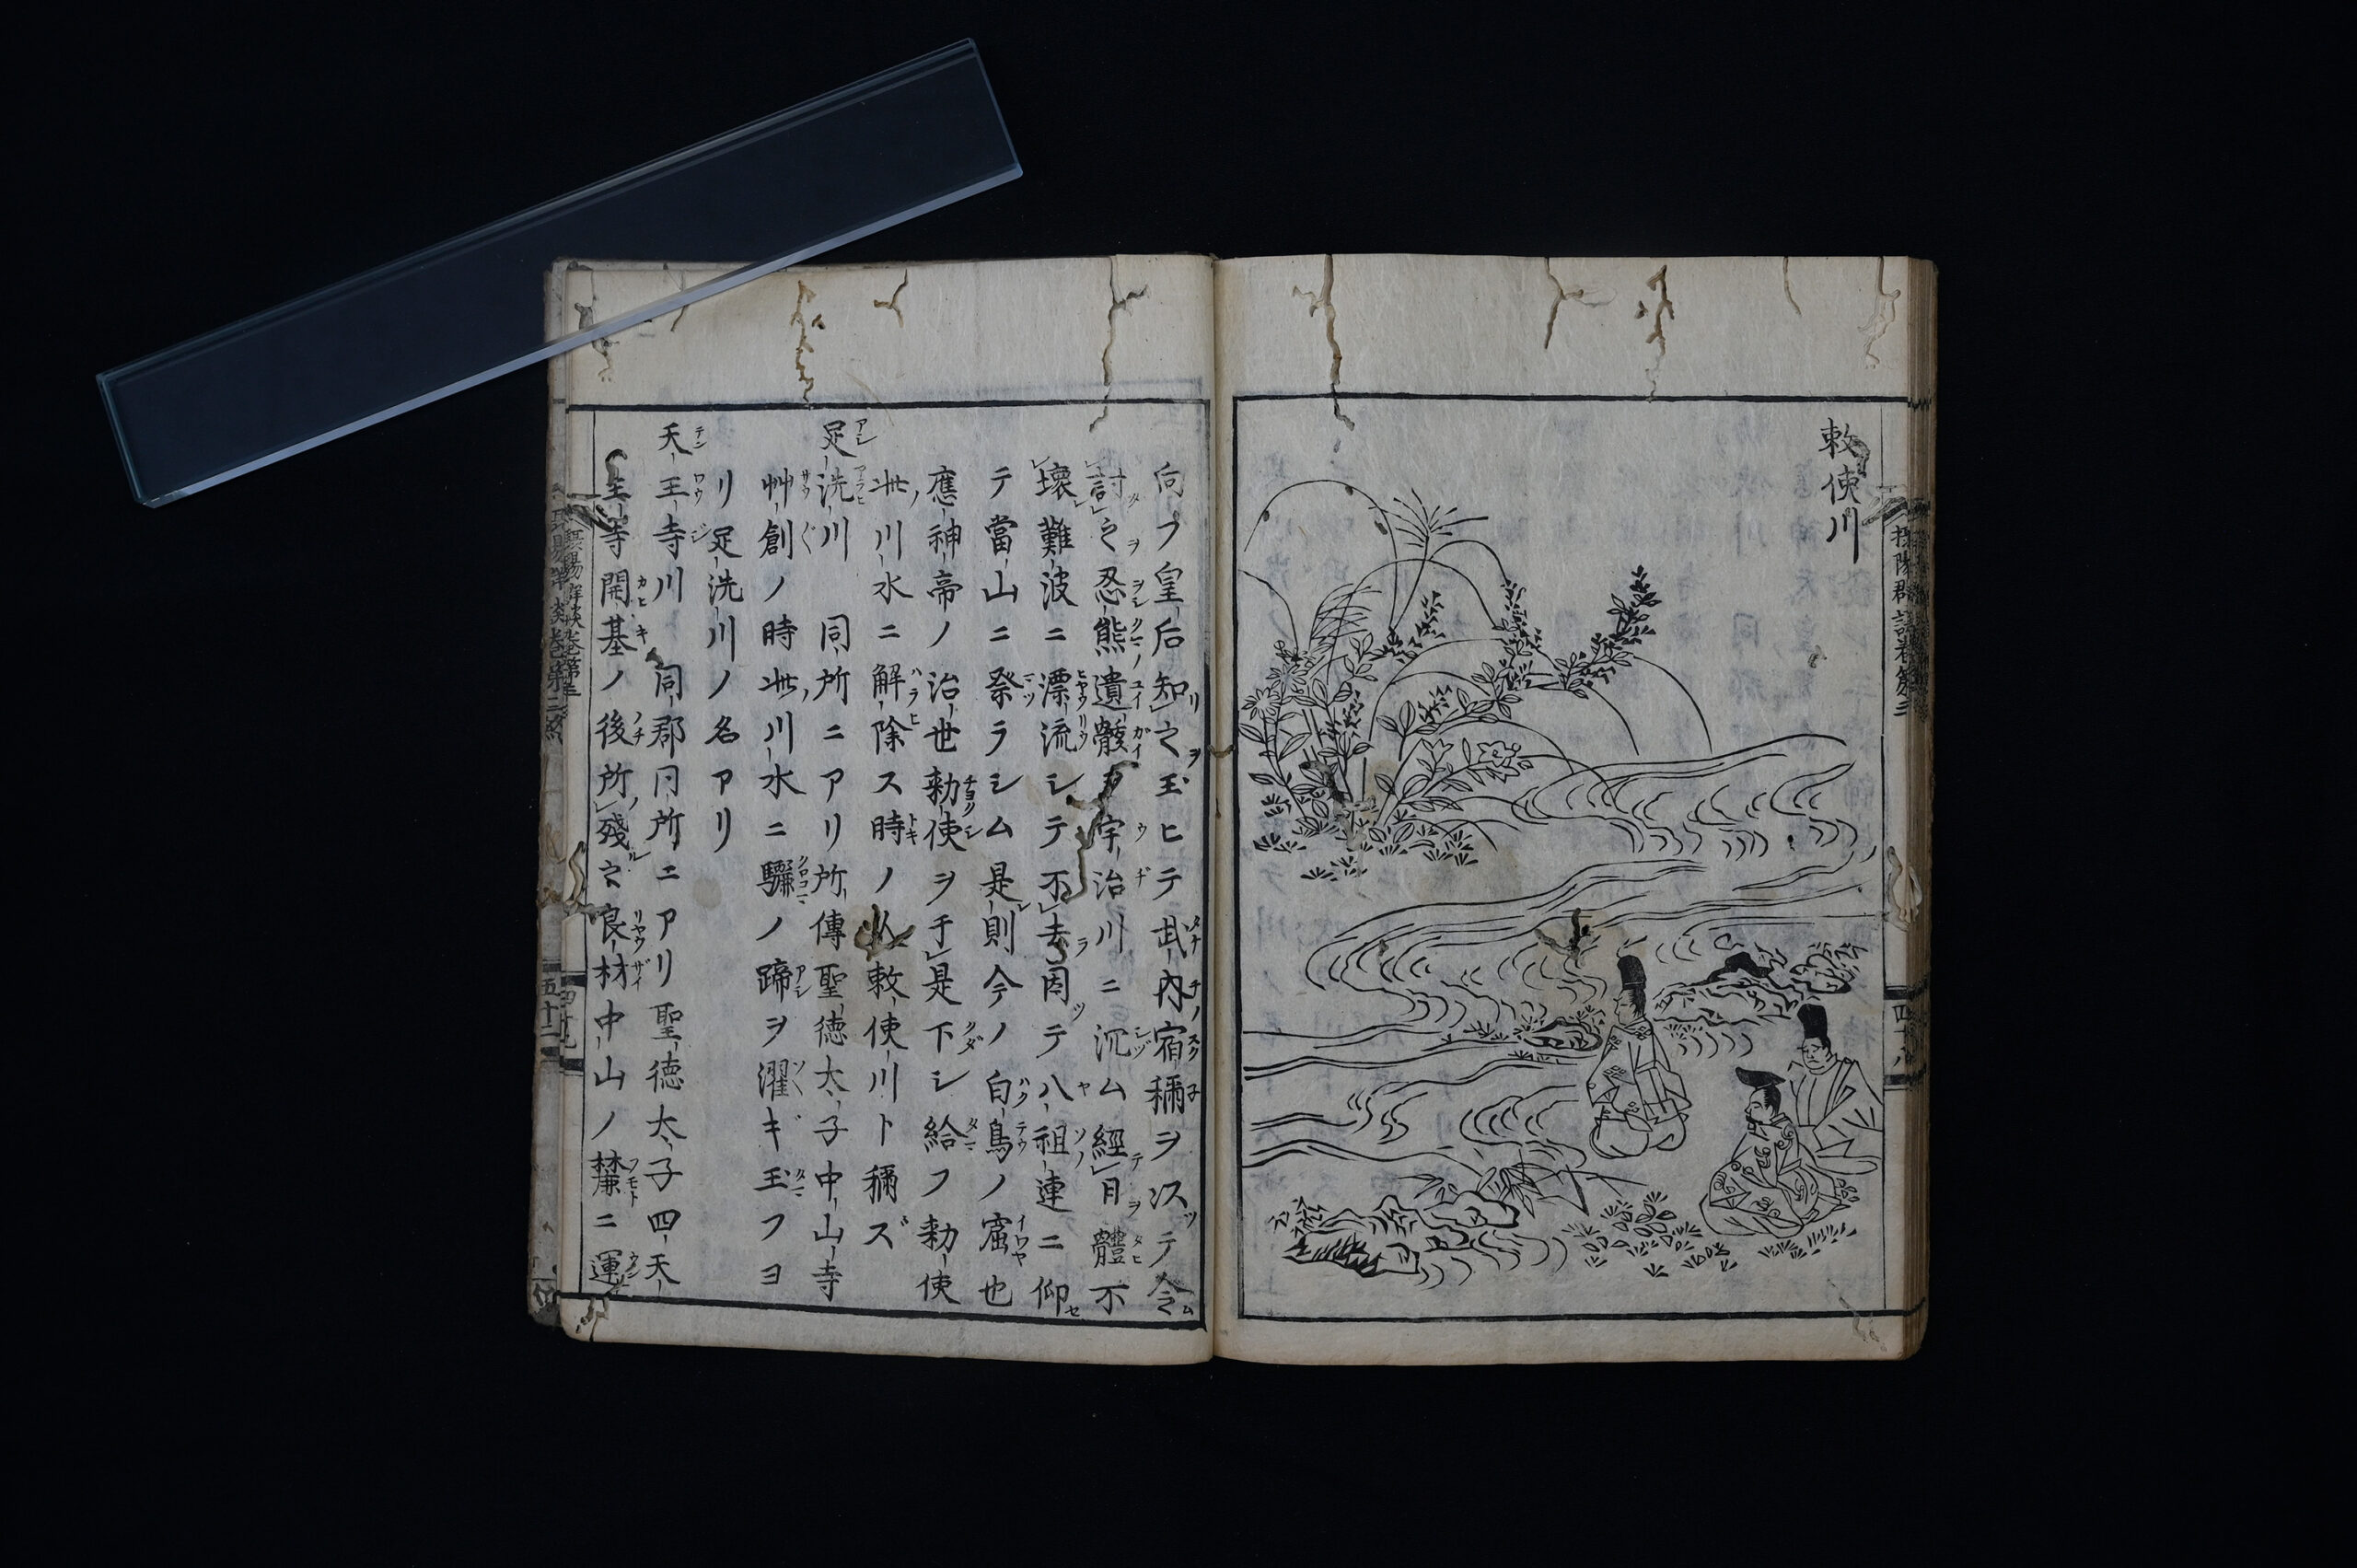 敕使川
摂陽群談巻第三
四十八
向フ皇后知之玉ヒテ武内宿禰ヲ㳄テ令
討之忍熊遺骸ヲ宇治川ニ沉ム經日體不
壊難波ニ漂流シテ不去因テ八祖連ニ仰
テ當山ニ祭ラシム是則今ノ白鳥ノ窟也
應神帝ノ治世勅使ヲ于是下シ給フ勅使
此川水ニ解除ス時ノ人敕使川ト稱ズ
足洗川 同所ニアリ所傳聖徳太子中山寺
艸創ノ時此川水ニ驪ノ蹄ヲ濯ギ玉フヨ
リ足洗川ノ名アリ
天王寺川 同郡同所ニアリ聖徳太子四天
王寺開基ノ後所殘之良材中山ノ麓ニ運